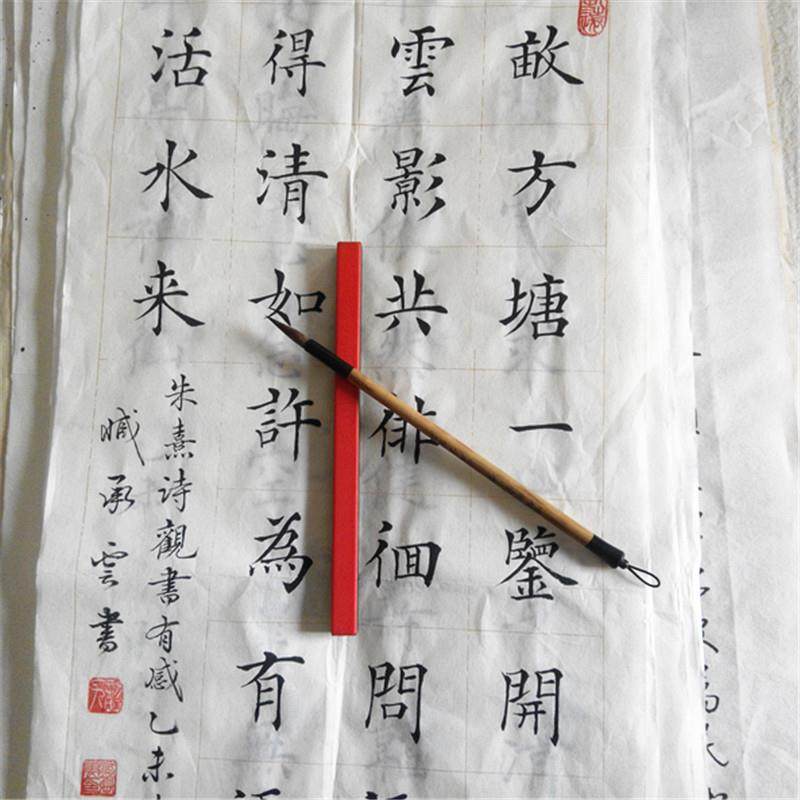 畝方塘一鑒開
雲影共徘徊問
得清如許為有
活水来
朱熹詩觀書有感乙未
臧承雲書